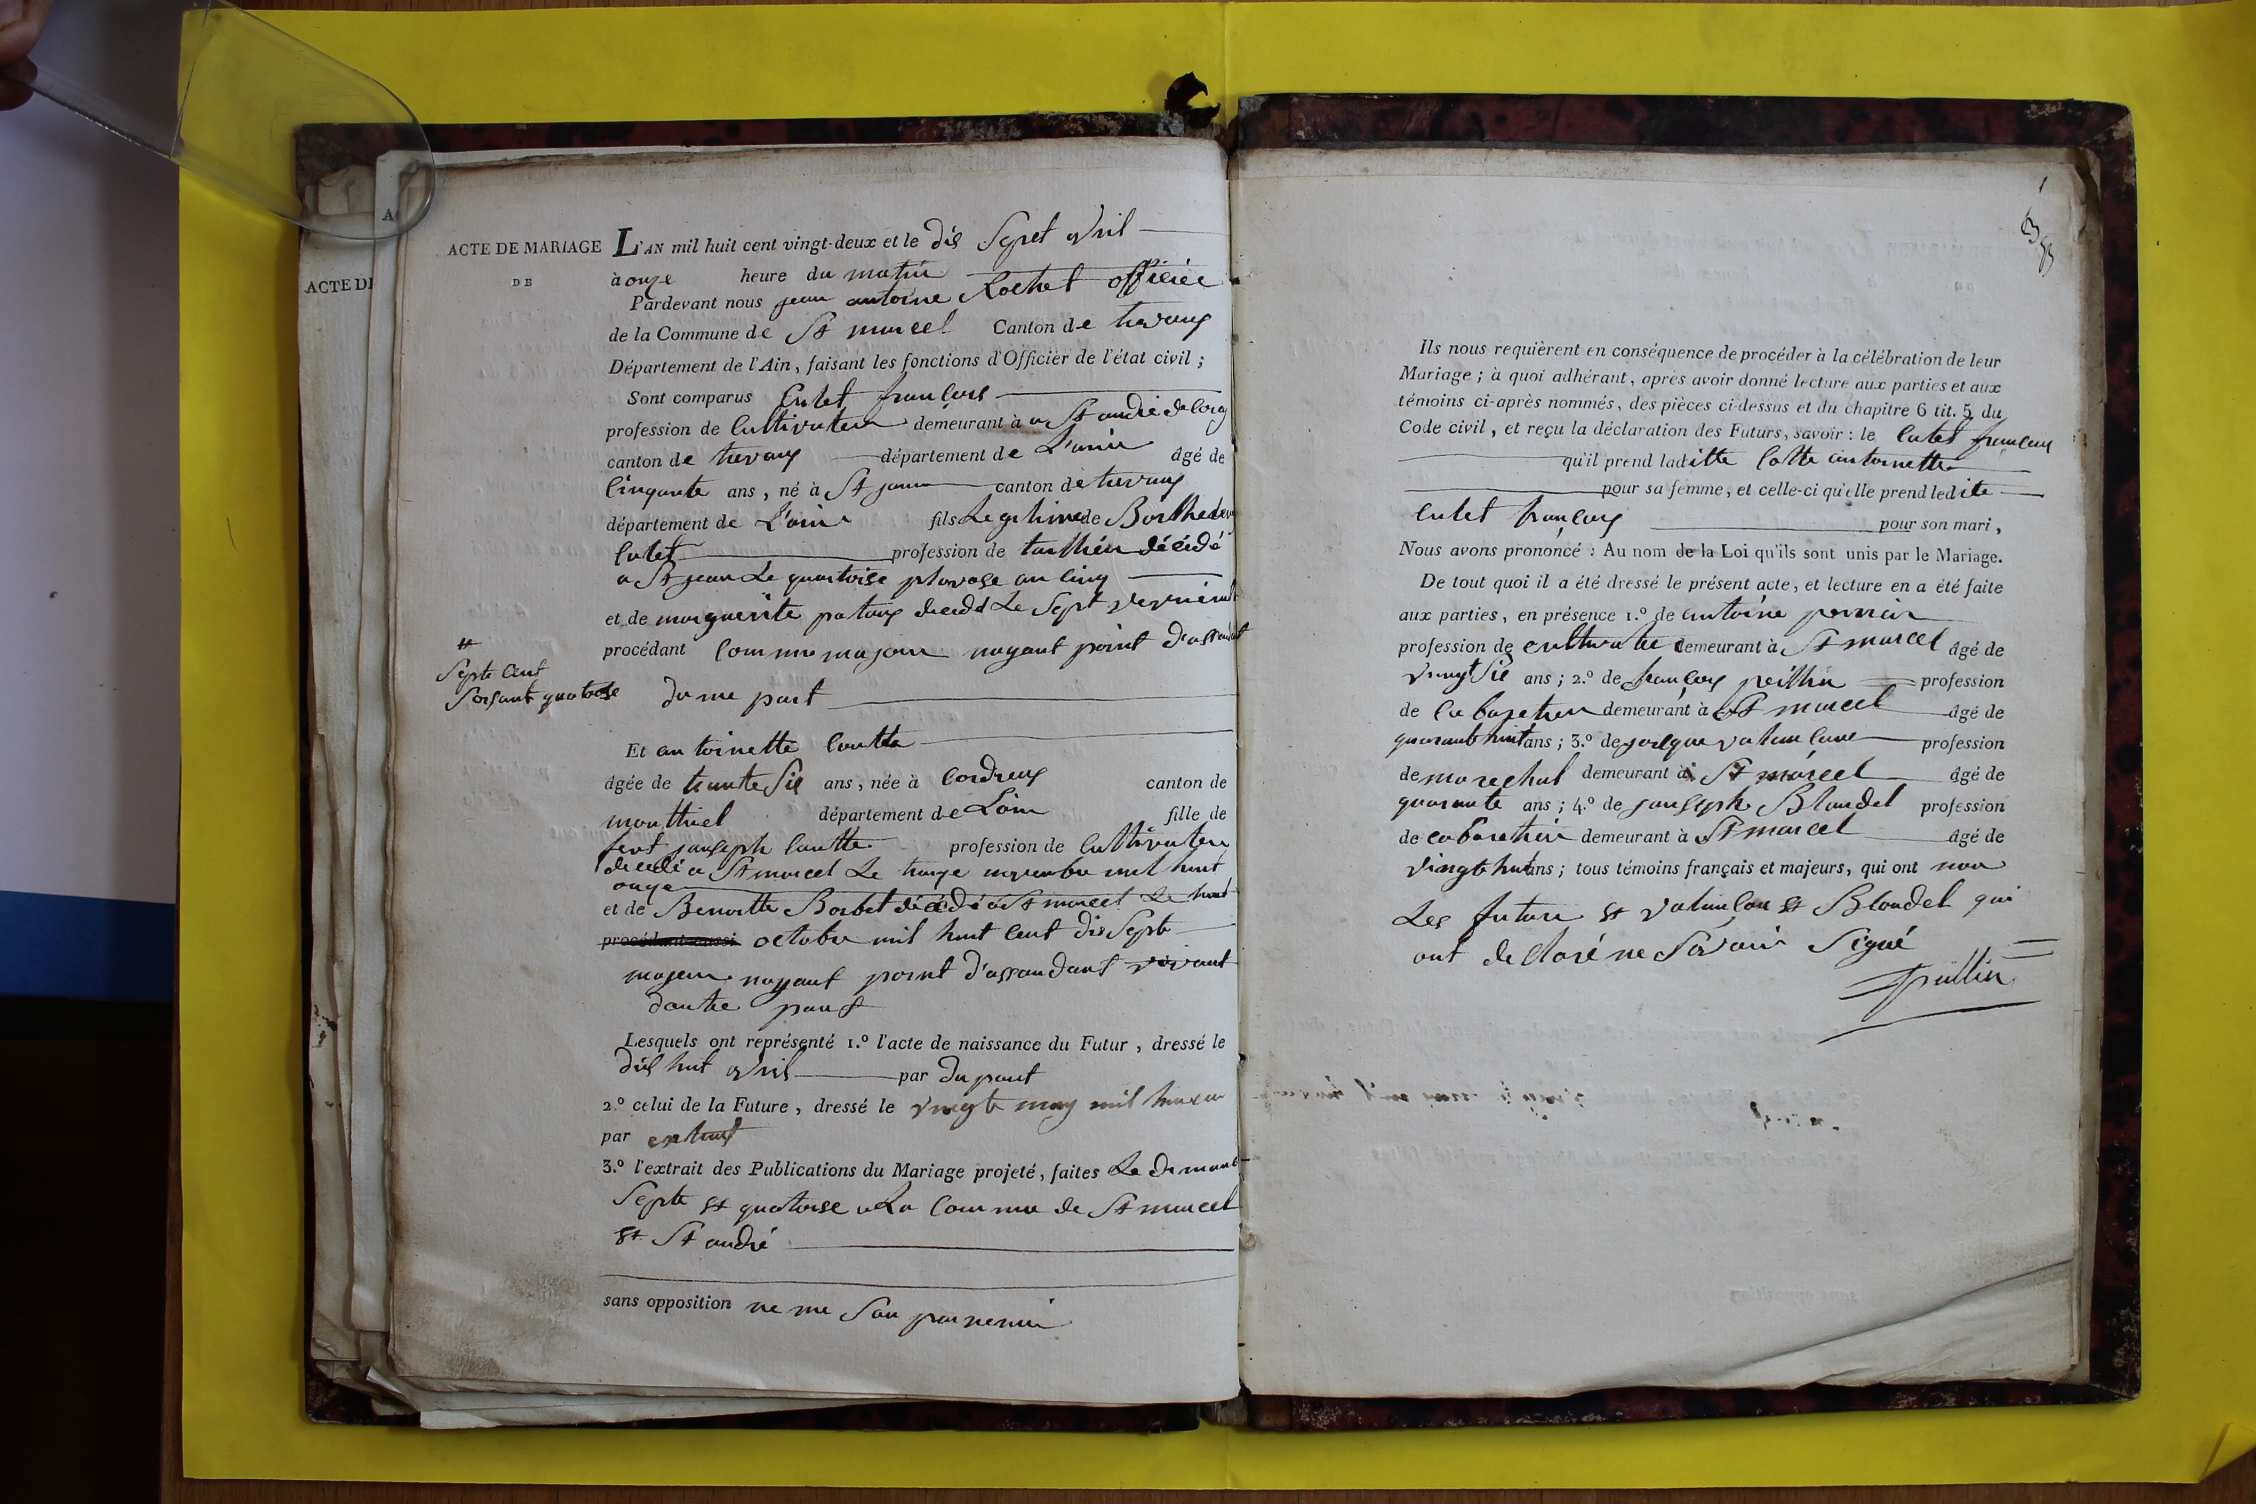 ACTE DE MARIAGE
DE
ACTE DE
L'AN mil huit cent vingt-deux et le dis Sepet avril
à onze heure du matin
Pardevant nous jean antoine Rochet officiée
de la Commune de St marcel Canton de trevoux
Département de l'Ain, faisant les fonctions d'Officier de l'état civil ;
Sont comparus Cutet françois
profession de Cultivateur demeurant à a St andré de Corcy
canton de trevoux département de L'ain âgé de
Cinquante ans, né à St jean canton de trevoux
département de L'ain fils Legitime de
Cutet profession de décédé
a St jean Le quatorse pluvose an cinq
et de marguerite decedé Le Sept
#
Septe Cent
Soisante quatorse
procédant Comme majeur nayant point
du me part
Et antoinette Coutte
âgée de trante Sis ans, née à Cordieux canton de
monthiel département de Lain fille de
feut jauseph Coutte profession de Cultivateur
decedé a St marcel Le treize novembre mil huit
onze
et de Benoitte Borbet décédé a St marcel Le huit
procédant aussi octobre mil huit Cent dis Septe
majeur nayant point d'assandant vivant
dautre part
Lesquels ont représenté 1.° l'acte de naissance du Futur, dressé le
dis huit avril par Dupont
2.° celui de la Future, dressé le vingt may mil
par extrait
3.° l'extrait des Publications du Mariage projeté, faites Le dimanche
Septe et quatorse a La Commune de St marcel
et St andré
sans opposition ne me Son parvenui
Ils nous requièrent en conséquence de procéder à la célébration de leur
Mariage ; à quoi adhérant, après avoir donné lecture aux parties et aux
témoins ci-après nommés, des pièces ci-dessus et du chapitre 6 tit. 5 du
Code civil, et reçu la déclaration des Futurs, savoir : le Cutet françois
qu'il prend laditte Cotte antoinette
pour sa femme, et celle-ci qu'elle prend ledite
Cutet françois pour son mari,
Nous avons prononcé : Au nom de la Loi qu'ils sont unis par le Mariage.
De tout quoi il a été dressé le présent acte, et lecture en a été faite
aux parties, en présence 1.° de antoine perrin
profession de demeurant à St marcel âgé de
vingt Sis ans ; 2.° de françois peillin profession
de Cabaretier demeurant à St marcel âgé de
quarante huit ans ; 3.° de profession
de marechal demeurant à St marcel âgé de
quarante ans ; 4.° de jauseph Blondel profession
de cabaretier demeurant à St marcel âgé de
vingt huit ans ; tous témoins français et majeurs, qui ont non
Les future et et Blondel qui
ont declaré ne Savoir Signé